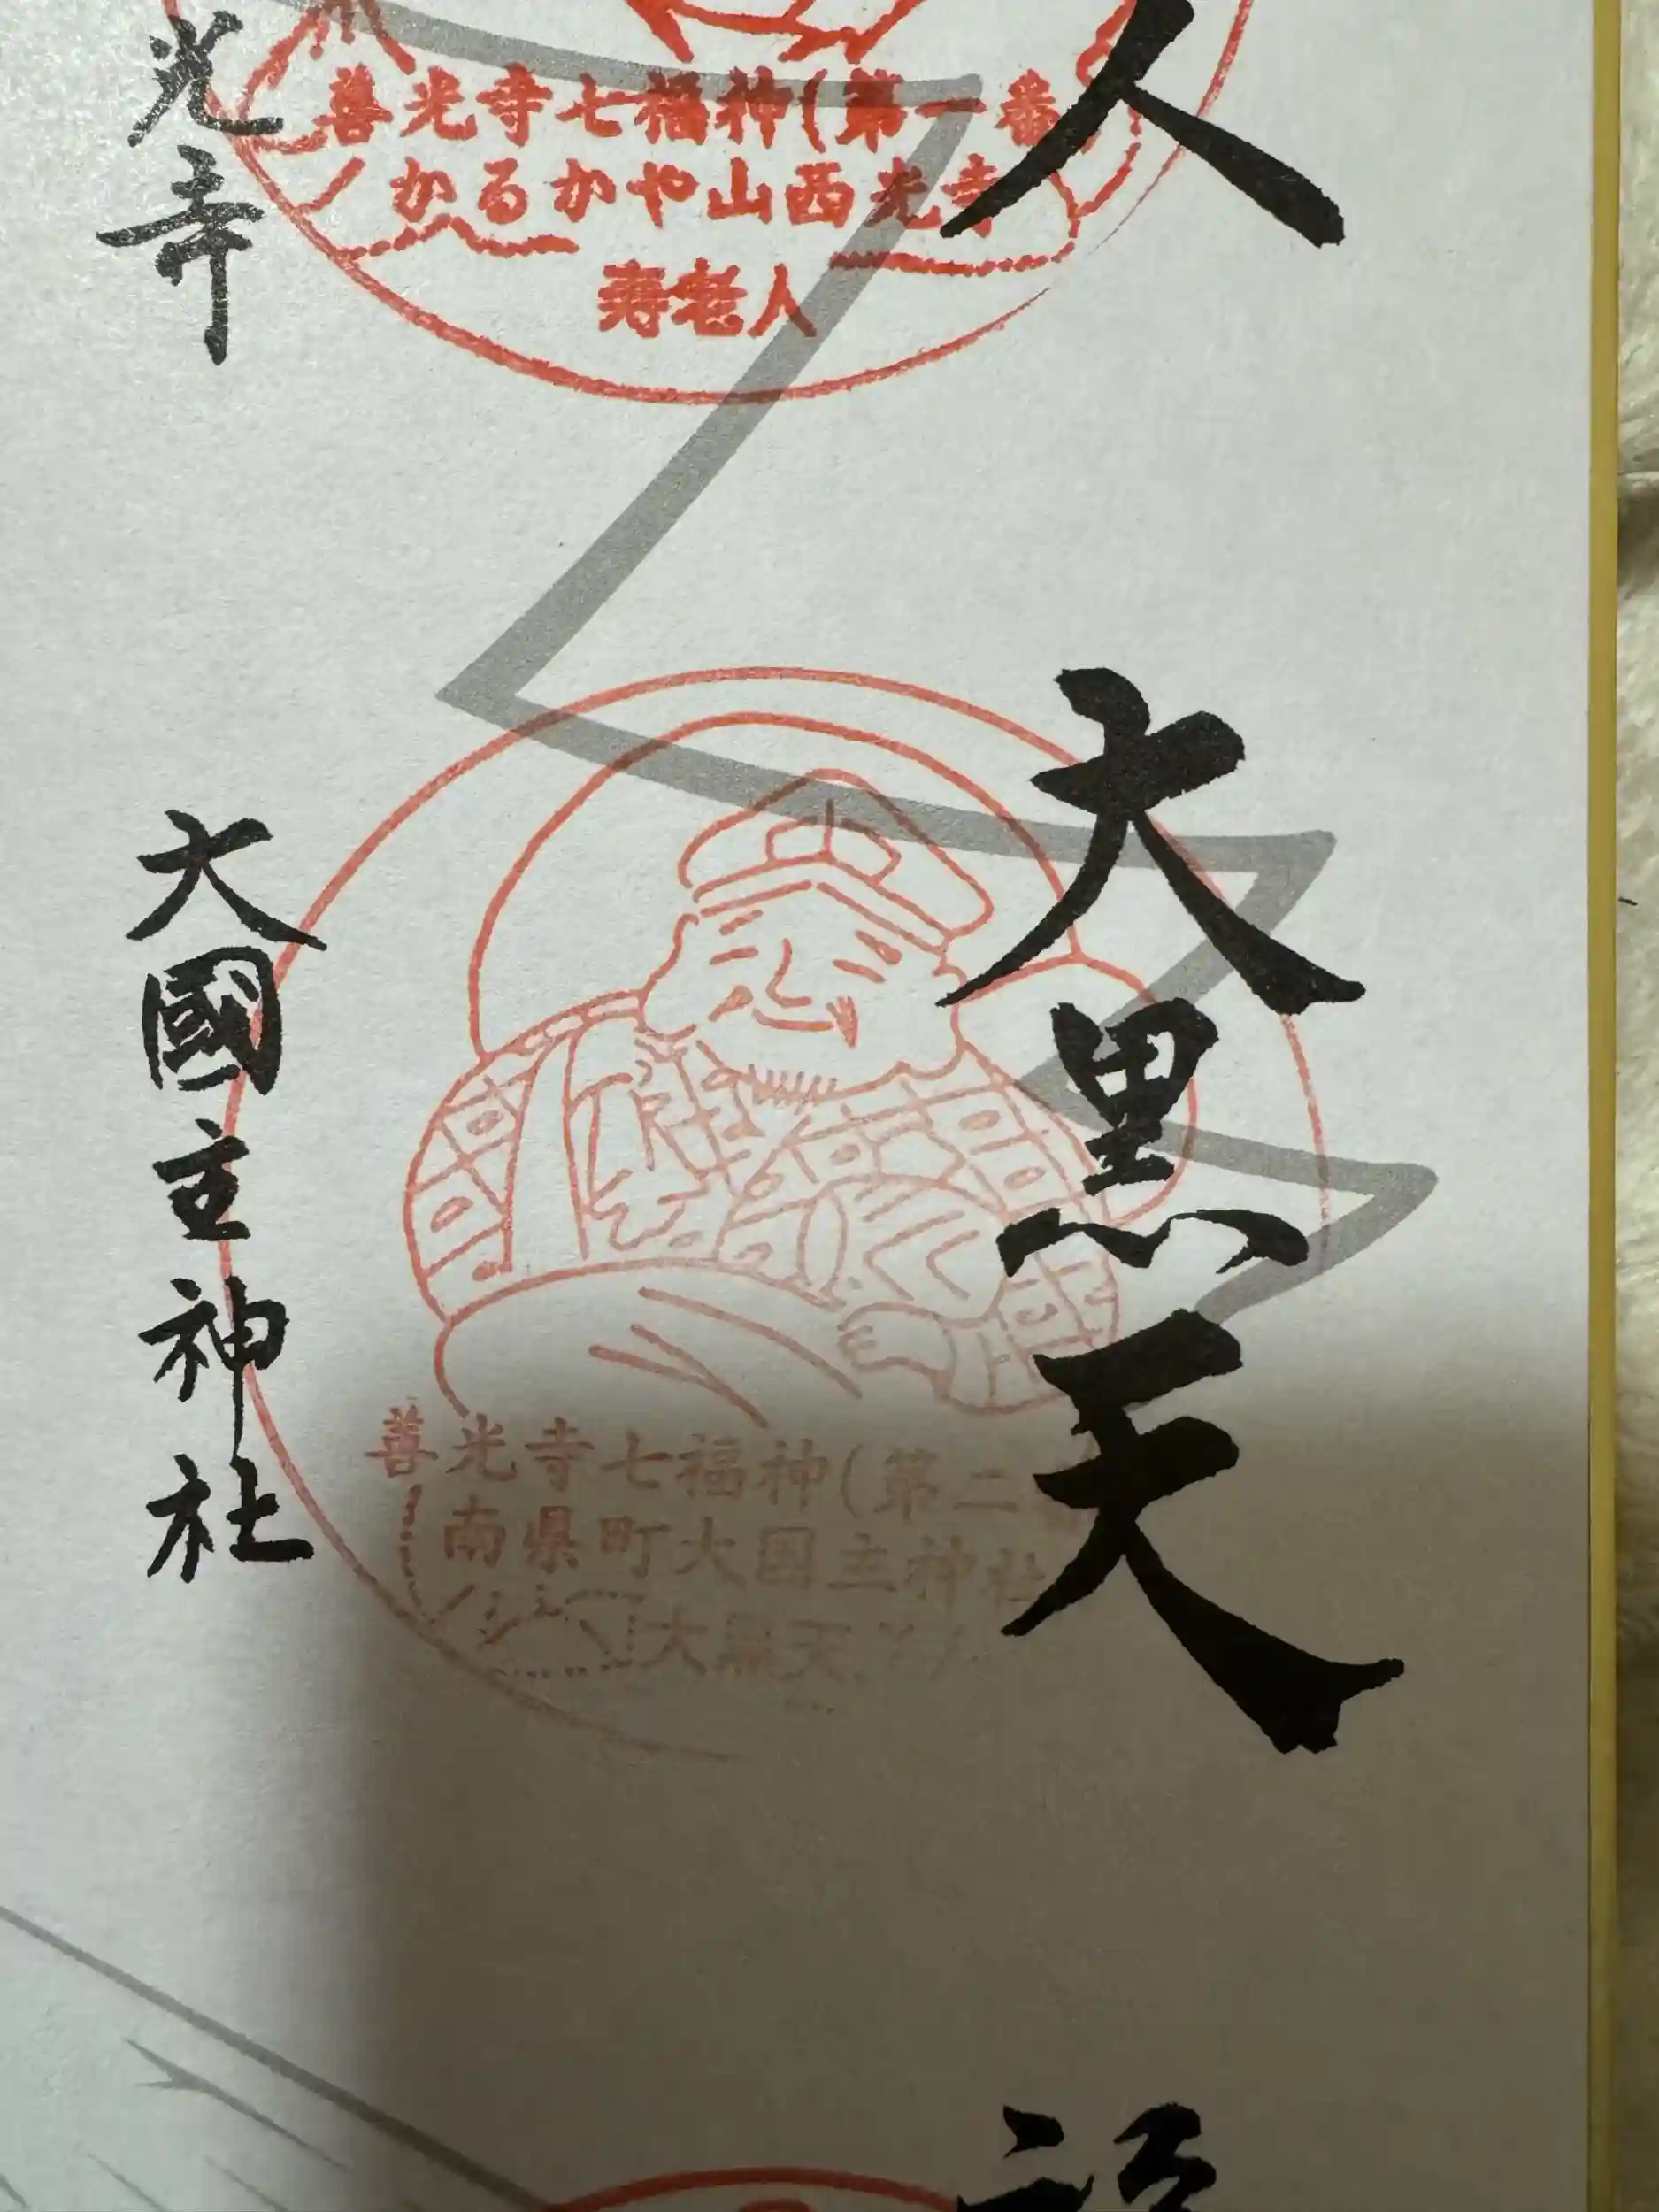 人
善光寺七福神(第一番)
かるかや山西光寺
寿老人
光寺
大黒天
善光寺七福神(第二
南県町大国主神社
大黒天
大國主神社
福